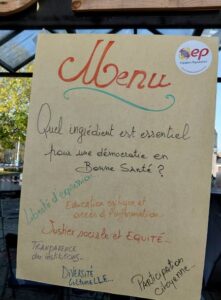 Menu
ep
Quel ingrédient est essentiel
pour une démocratie en
Bonne Santé ?
Liberté d'expression
Education critique et
accès à l'information
Justice sociale et EQUITÉ.
TRANSPARENCE
des institutions.
DIVERSITÉ
CULTURELLE.
Participation
citoyenne.